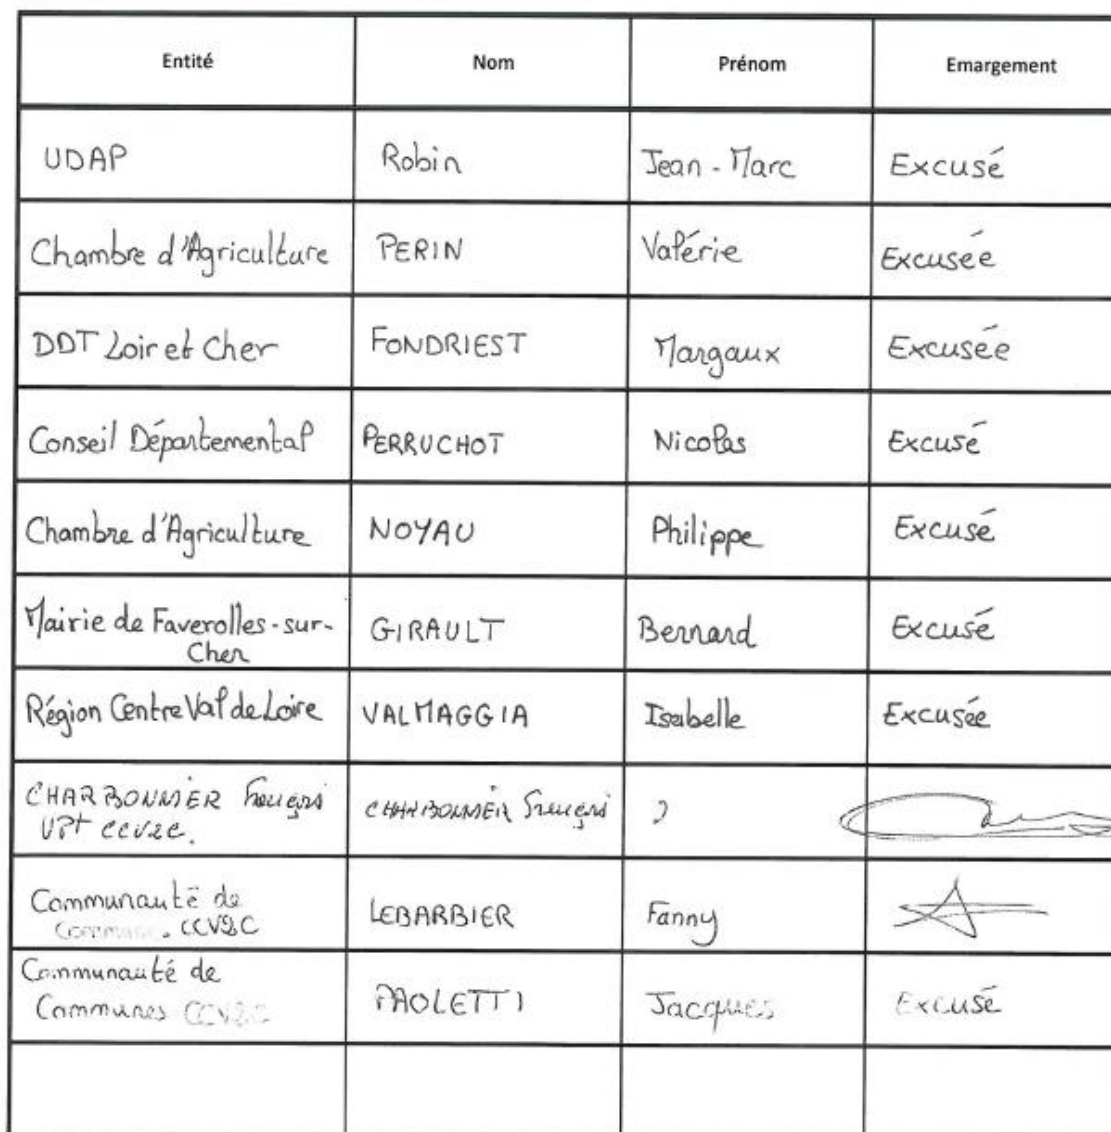 Entité Nom Prénom Emargement
UDAP Robin Jean-Marc Excusé
Chambre d'Agriculture PERIN Valérie Excusée
DDT Loir et Cher FONDRIEST Margaux Excusée
Conseil Départemental PERRUCHOT Nicolas Excusé
Chambre d'Agriculture NOYAU Philippe Excusé
Mairie de Faverolles-sur-
Cher GIRAULT Bernard Excusé
Région Centre Val de Loire VALMAGGIA Isabelle Excusée
CHARBONNIER CHARBONNIER
VPt CCV2C.
Communauté de LEBARBIER Fanny
CCV2C
Communauté de PAOLETTI Jacques Excusé
Communes CCV2C